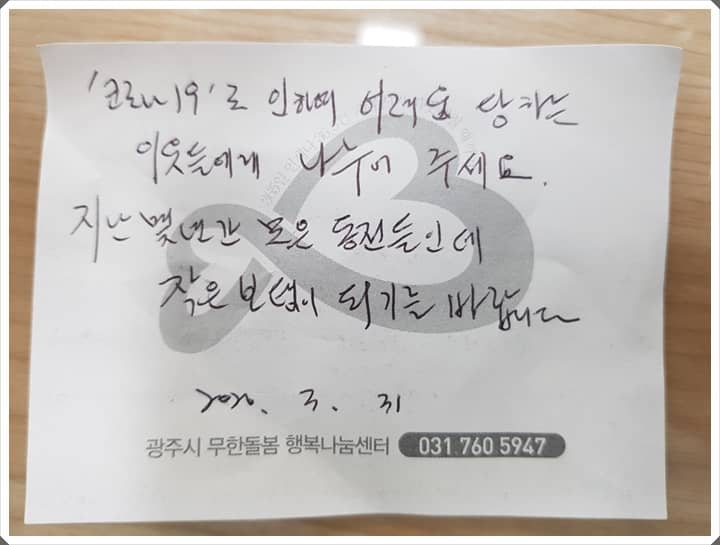 '코로나19'로 인하여 어려움 당하는
이웃들에게 나누어 주세요.
지난 몇년간 모은 동전들인데
작은 보탬이 되기를 바랍니다
2020. 3. 31
광주시 무한돌봄 행복나눔센터 031.760.5947